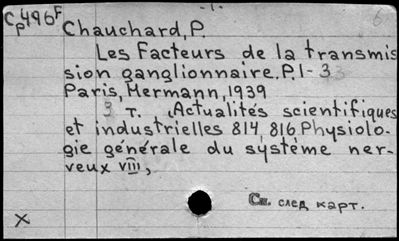 -1-
Ср496F
6
Chauchard, P.
Les Facteurs de la transmis
sion ganglionnaire. P. 1-3
Paris, Hermann, 1939
3 т. Actualités scientifiques
et industrielles 814, 816. Physiolo-
gie générale du système ner-
veux VIII,
См. след карт.
X